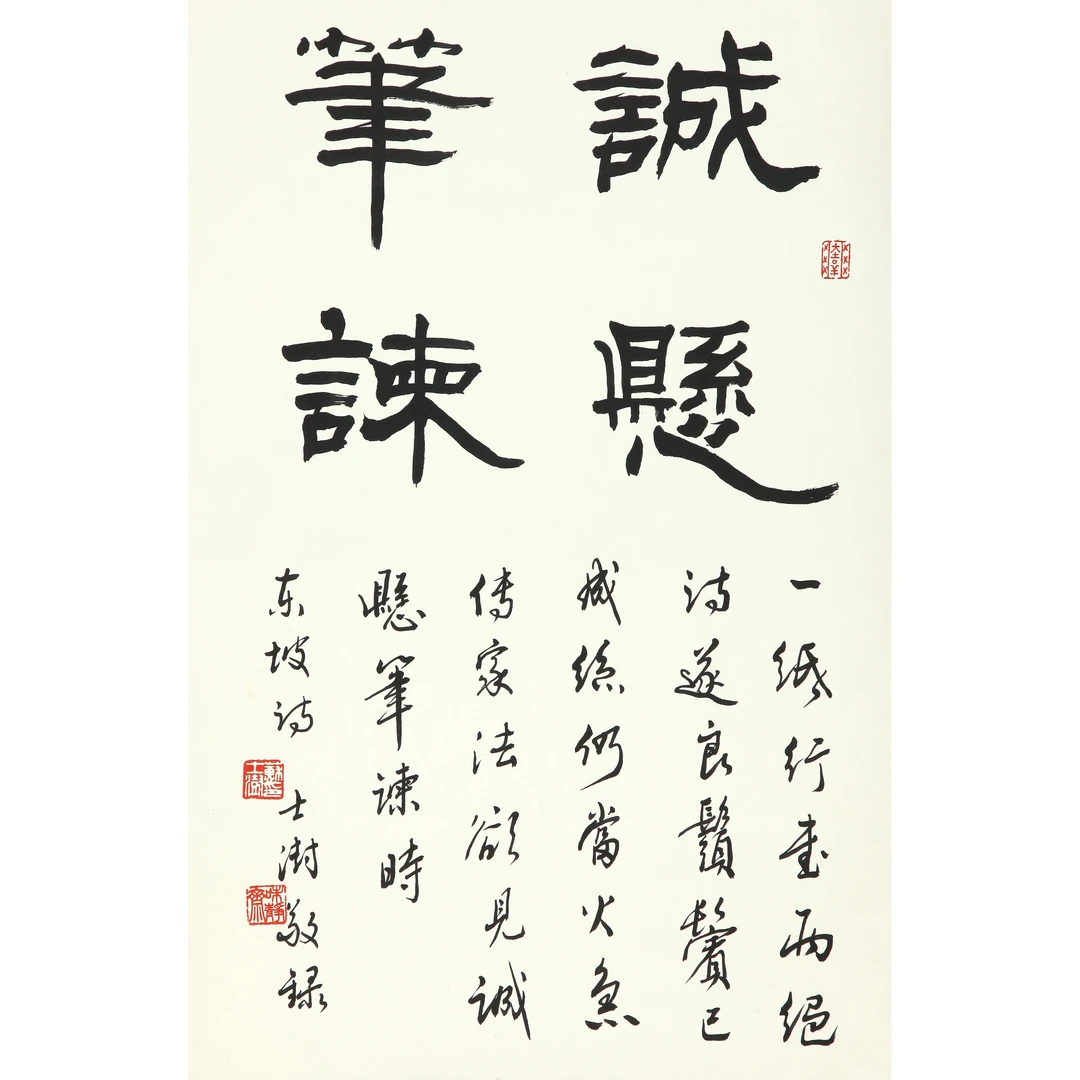 誠懸
筆諫
大吉羊
一紙行書兩絕
詩遂良鬚鬢已
成絲仍當火急
傳家法欲見誠
懸筆諫時
東坡詩 士澍敬録
味靜齋